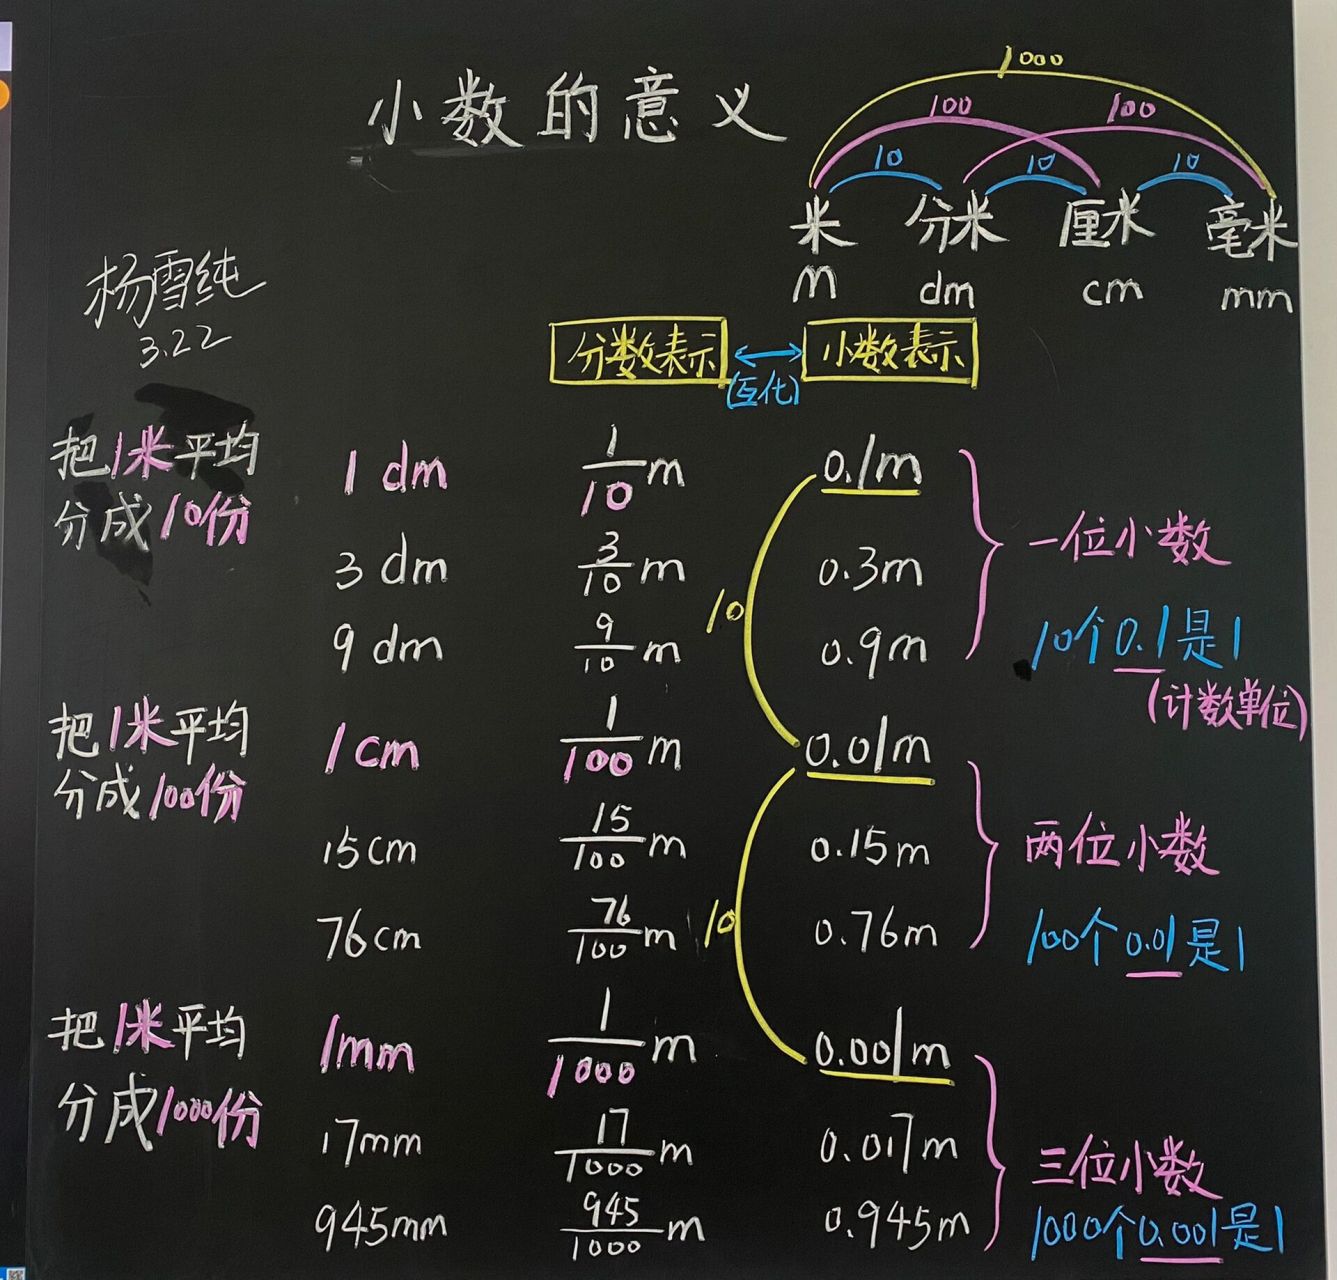 小数的意义
1000
100 100
10 10 10
米 分米 厘米 毫米
m dm cm mm
杨雪纯
3.22
分数表示 小数表示
(互化)
把1米平均
分成10份
1 dm 1/10 m 0.1m
3 dm 3/10 m 0.3m
9 dm 9/10 m 0.9m
一位小数
10个0.1是1
(计数单位)
10
把1米平均
分成100份
1cm 1/100 m 0.01m
15cm 15/100 m 0.15m
76cm 76/100 m 0.76m
两位小数
100个0.01是1
10
把1米平均
分成1000份
1mm 1/1000 m 0.001m
17mm 17/1000 m 0.017m
945mm 945/1000 m 0.945m
三位小数
1000个0.001是1